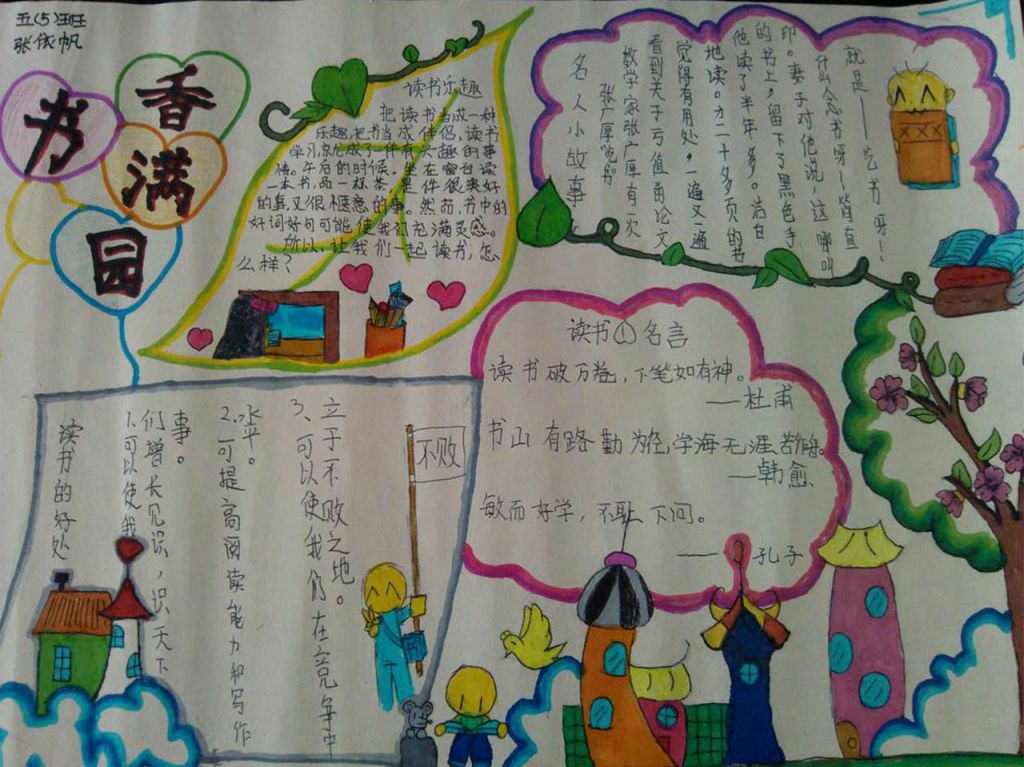 五(5)班
张依帆
书
香
满
园
读书乐趣
把读书当成一种
乐趣,把书当成伴侣,读书
学习,就成了一件有兴趣的事
情。午后的时候。坐在窗台读
一本书,品一杯茶,是件很美好
的莫又很惬意的事。然而,书中的
好词好句可能使我们充满灵感。
所以,让我们一起读书,怎
么样?
名人小故事
张广厚吃书
数学家张广厚有一次
看到关于亏值的论文
觉得有用处,一遍又一遍
地读。为二十多页的书
他读了半年多。洁白
的书上,留下了黑色手
印。妻子对他说,这哪叫
什么念书呀!简直
就是——吃书呀!
读书的名言
读书破万卷,下笔如有神。
——杜甫
书山有路勤为径,学海无涯苦作舟。
——韩愈
敏而好学,不耻下问。
——孔子
读书的好处
1.可以使我
们增长见识,识天下
事。
2.可提高阅读能力和写作
水平。
3、可以使我们在竞争中
立于不败之地。
不败